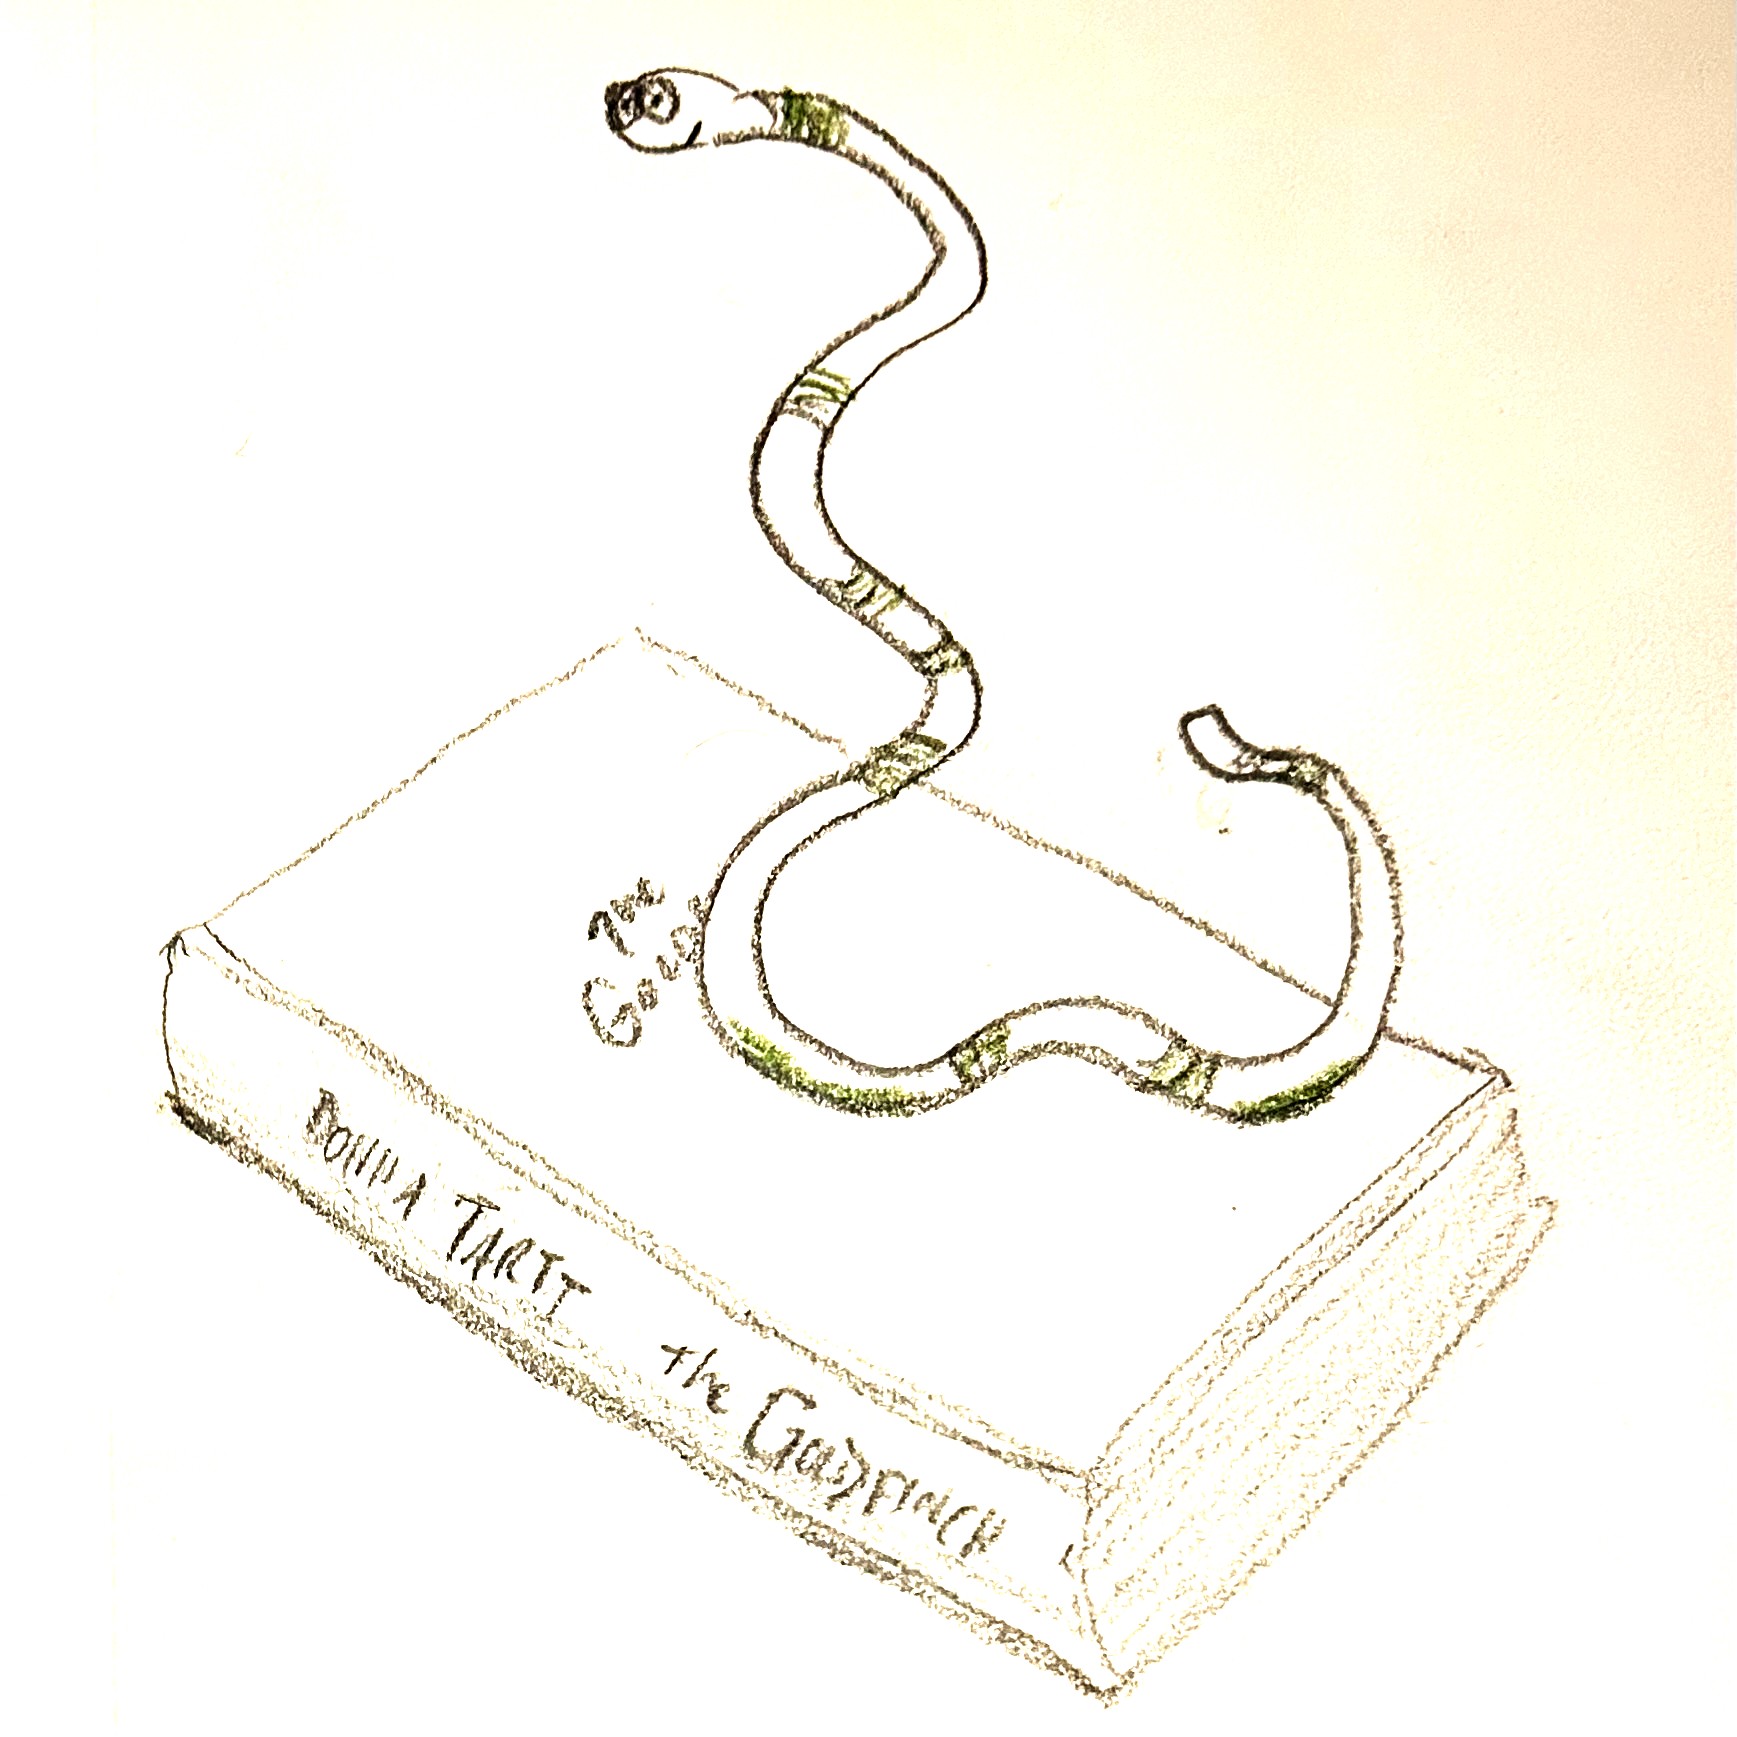 The
Gold
DONNA TARTT the GOLDFINCH